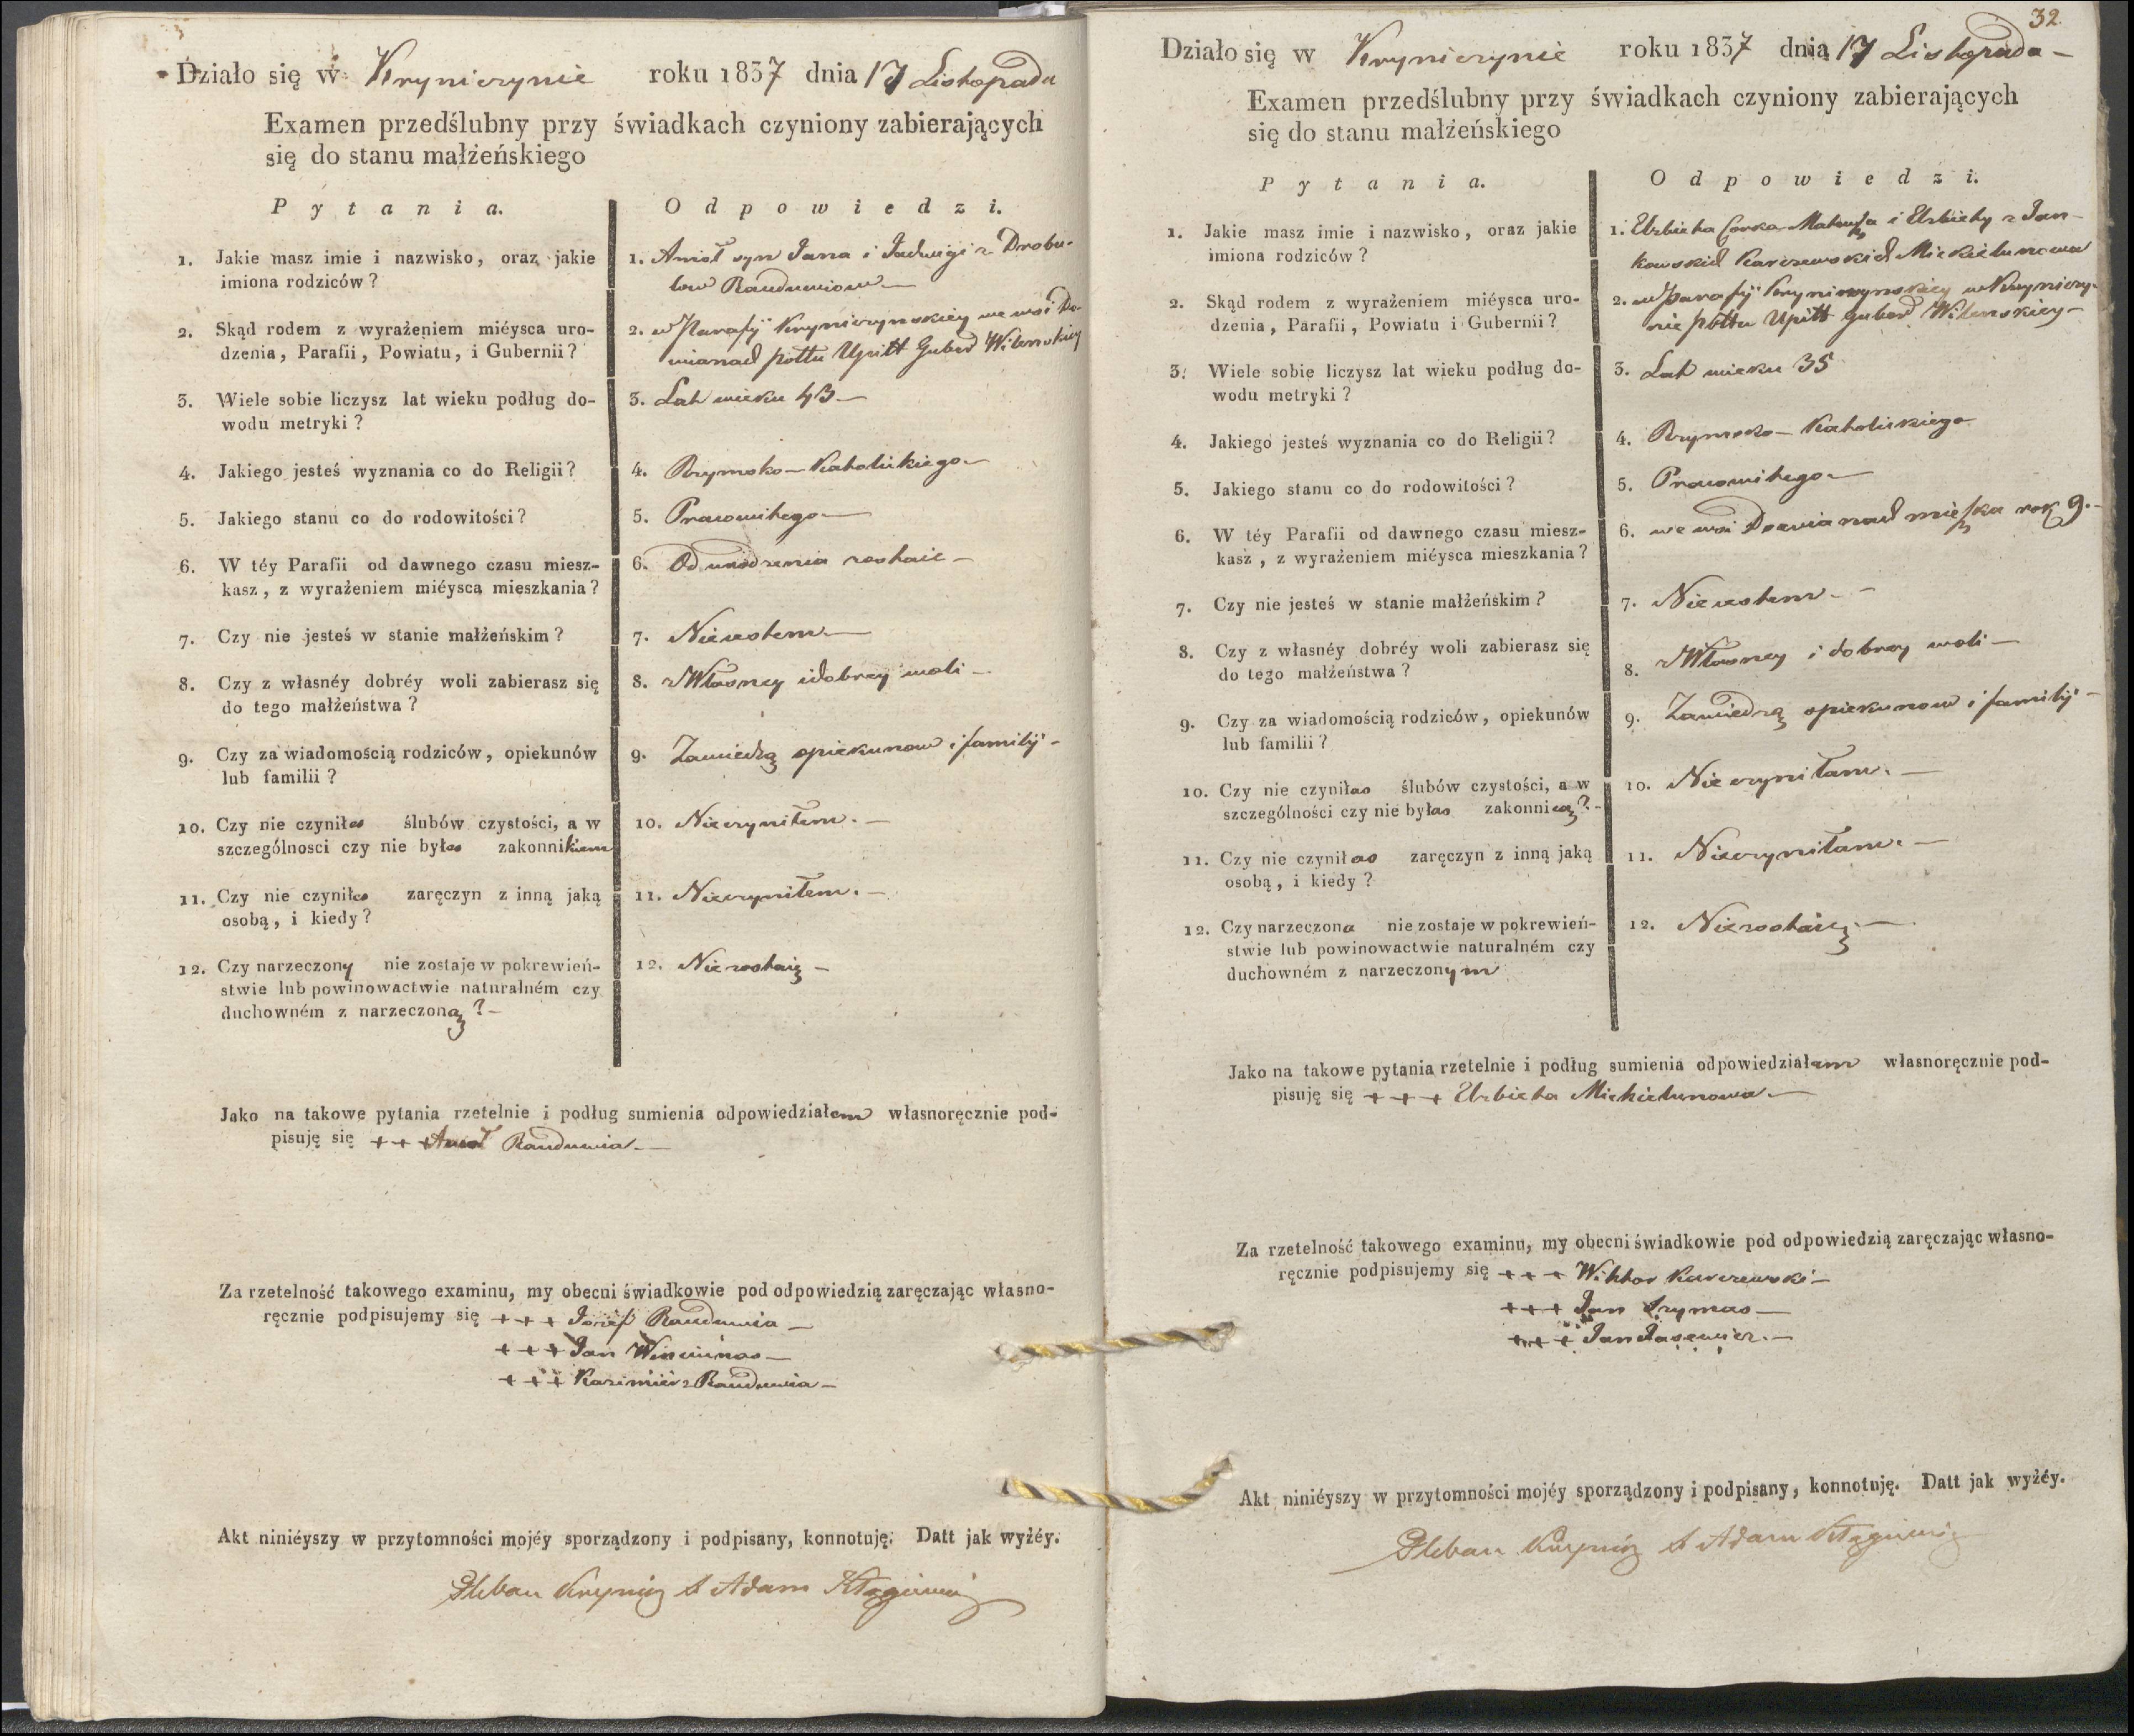 Działo się w Kryniczynie roku 1837 dnia 17 Listopada
Examen przedślubny przy świadkach czyniony zabierających
się do stanu małżeńskiego
Pytania. Odpowiedzi.
1. Jakie masz imie i nazwisko, oraz jakie
imiona rodziców?
1. Anioł syn Jana i Jadwigi z Drobu-
low
2. Skąd rodem z wyrażeniem miéysca uro-
dzenia, Parafii, Powiatu, i Gubernii?
2. w Parafij Kryniczynskiey we wsi Do-
wianach pottu Upitt Guber Wilenskiey
3. Wiele sobie liczysz lat wieku podług do-
wodu metryki?
3. Lat wieku 43 —
4. Jakiego jesteś wyznania co do Religii?
4. Rzymsko — Katolickiego —
5. Jakiego stanu co do rodowitości?
5. Pracowitego —
6. W téy Parafii od dawnego czasu miesz-
kasz, z wyrażeniem miéysca mieszkania?
6. Od urodzenia zostaie —
7. Czy nie jesteś w stanie małżeńskim?
7. Nieiestem —
8. Czy z własnéy dobréy woli zabierasz się
do tego małżeństwa?
8. zWłasney i dobrey woli —
9. Czy za wiadomością rodziców, opiekunów
lub familii?
9. Zawiedzą opiekunow i familij —
10. Czy nie czyniłes ślubów czystości, a w
szczególnosci czy nie byłes zakonnikiem
10. Nieczyniłem. —
11. Czy nie czyniłes zaręczyn z inną jaką
osobą, i kiedy?
11. Nieczyniłem. —
12. Czy narzeczony nie zostaje w pokrewień-
stwie lub powinowactwie naturalném czy
duchowném z narzeczoną? —
12. Niezostaię —
Jako na takowe pytania rzetelnie i podług sumienia odpowiedziałem własnoręcznie pod-
pisuję się + + + Anioł Rauduwia. —
Za rzetelność takowego examinu, my obecni świadkowie pod odpowiedzią zaręczając własno-
ręcznie podpisujemy się + + + Jozef Rauduwia —
+ + + Jan
+ + + Kazimierz Rauduwia —
Akt niniéyszy w przytomności mojéy sporządzony i podpisany, konnotuję. Datt jak wyżéy.
Pleban X Adam
32.
Działo się w Kryniczynie roku 1837 dnia 17 Listopada —
Examen przedślubny przy świadkach czyniony zabierających
się do stanu małżeńskiego
Pytania. Odpowiedzi.
1. Jakie masz imie i nazwisko, oraz jakie
imiona rodziców?
1. Elzbieta Corka Mateusza i Elzbiety z Jan-
kowskich Karczewskich Mickielunowa
2. Skąd rodem z wyrażeniem miéysca uro-
dzenia, Parafii, Powiatu i Gubernii?
2. w Parafij Kryniczynskiey w Kryniczy-
nie pottu Upitt Guber Wilenskiey —
3. Wiele sobie liczysz lat wieku podług do-
wodu metryki?
3. Lat wieku 35
4. Jakiego jesteś wyznania co do Religii?
4. Rzymsko — Katolickiego
5. Jakiego stanu co do rodowitości?
5. Pracowitego —
6. W téy Parafii od dawnego czasu miesz-
kasz, z wyrażeniem miéysca mieszkania?
6. we wsi Dowianach mieszka rok 9. —
7. Czy nie jesteś w stanie małżeńskim?
7. Nieiestem. —
8. Czy z własnéy dobréy woli zabierasz się
do tego małżeństwa?
8. zWłasney i dobrey woli —
9. Czy za wiadomością rodziców, opiekunów
lub familii?
9. Zawiedzą opiekunow i familij —
10. Czy nie czyniłas ślubów czystości, a w
szczególności czy nie byłas zakonnicą? —
10. Nie czyniłam. —
11. Czy nie czyniłas zaręczyn z inną jaką
osobą, i kiedy?
11. Nieczyniłam. —
12. Czy narzeczona nie zostaje w pokrewień-
stwie lub powinowactwie naturalném czy
duchowném z narzeczonym
12. Niezostaię. —
Jako na takowe pytania rzetelnie i podług sumienia odpowiedziałam własnoręcznie pod-
pisuję się + + + Elzbieta Mickielunowa —
Za rzetelność takowego examinu, my obecni świadkowie pod odpowiedzią zaręczając własno-
ręcznie podpisujemy się + + + Wiktor Karczewski —
+ + + Jan Szymas —
+ + + Jan
Akt niniéyszy w przytomności mojéy sporządzony i podpisany, konnotuję. Datt jak wyżéy.
Pleban X Adam